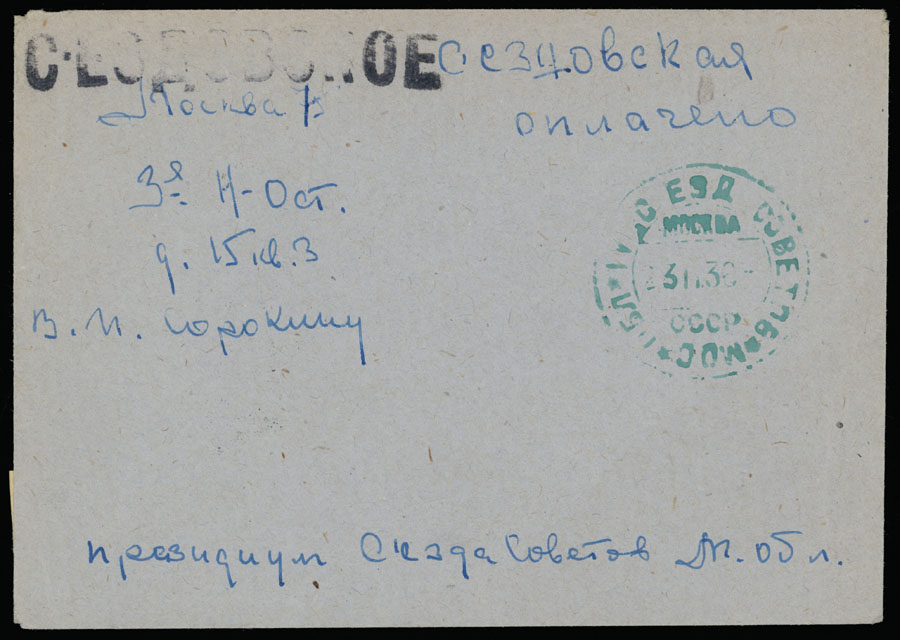 С·ЕЗДОВСКОЕ
Сезцовская
оплачено
Москва
3я Н-Ост.
д. 15 кв. 3
В. И. Сорокину
С ЕЗД СОВЕТОВ ★ МОС
МОСКВА
СССР
президиум Сезда Советов М. обл.